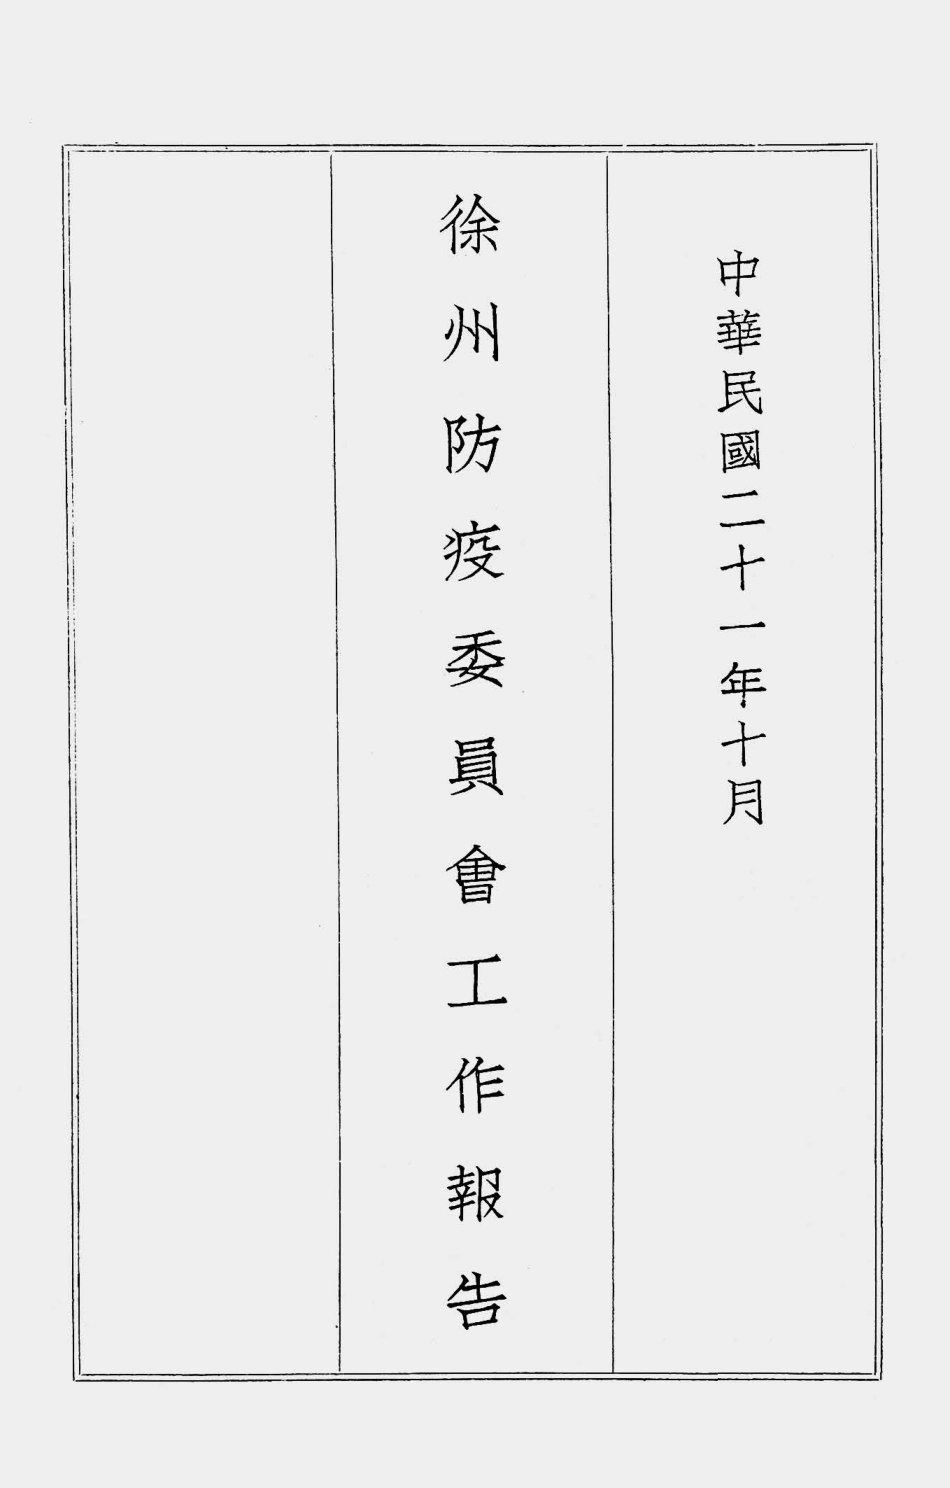 中華民國二十一年十月
徐州防疫委員會工作報告